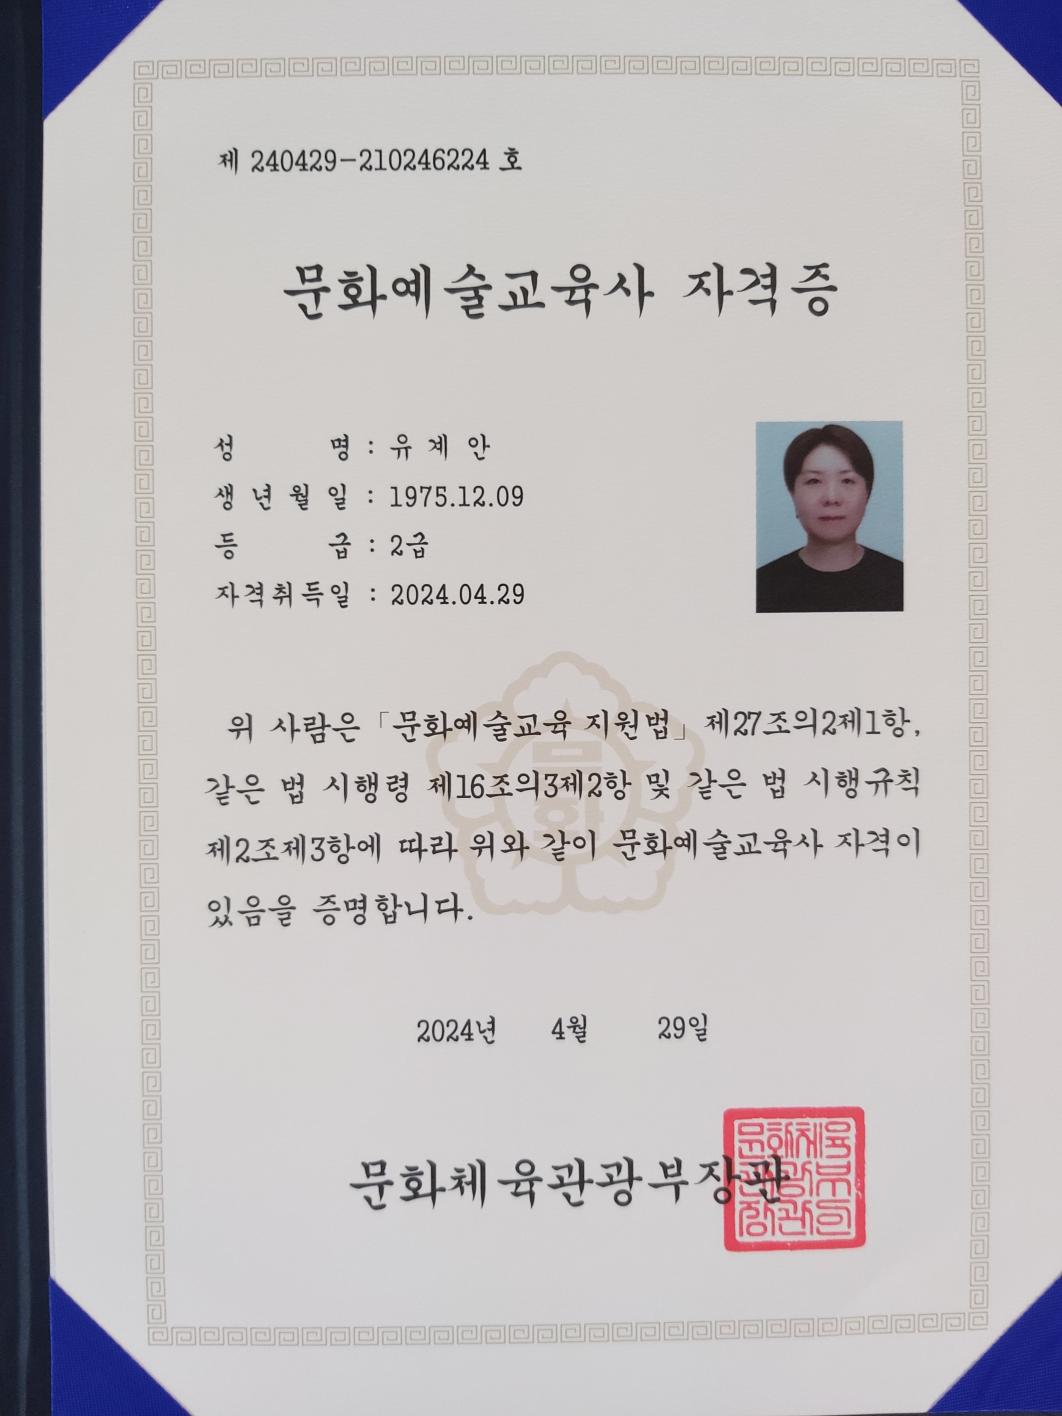 제 240429-210246224 호
문화예술교육사 자격증
성 명 : 유 계 안
생 년 월 일 : 1975.12.09
등 급 : 2급
자격취득일 : 2024.04.29
위 사람은 「문화예술교육 지원법」 제27조의2제1항,
같은 법 시행령 제16조의3제2항 및 같은 법 시행규칙
제2조제3항에 따라 위와 같이 문화예술교육사 자격이
있음을 증명합니다.
문화
2024년 4월 29일
문화체육관광부장관
문화체육
관광부
장관의